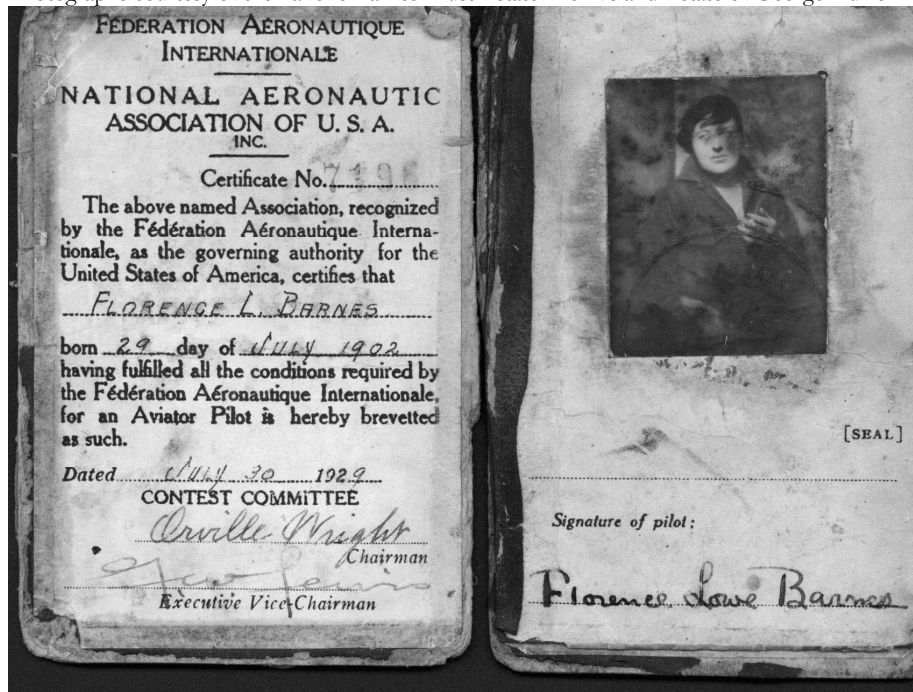 FÉDÉRATION AÉRONAUTIQUE
INTERNATIONALE
NATIONAL AERONAUTIC
ASSOCIATION OF U. S. A.
INC.
Certificate No. 7196
The above named Association, recognized
by the Fédération Aéronautique Interna-
tionale, as the governing authority for the
United States of America, certifies that
FLORENCE L. BARNES
born 29 day of JULY 1902
having fulfilled all the conditions required by
the Fédération Aéronautique Internationale,
for an Aviator Pilot is hereby brevetted
as such.
Dated JULY 30 1929
CONTEST COMMITTEE
Orville Wright
Chairman
Executive Vice-Chairman
[SEAL]
Signature of pilot:
Florence Lowe Barnes